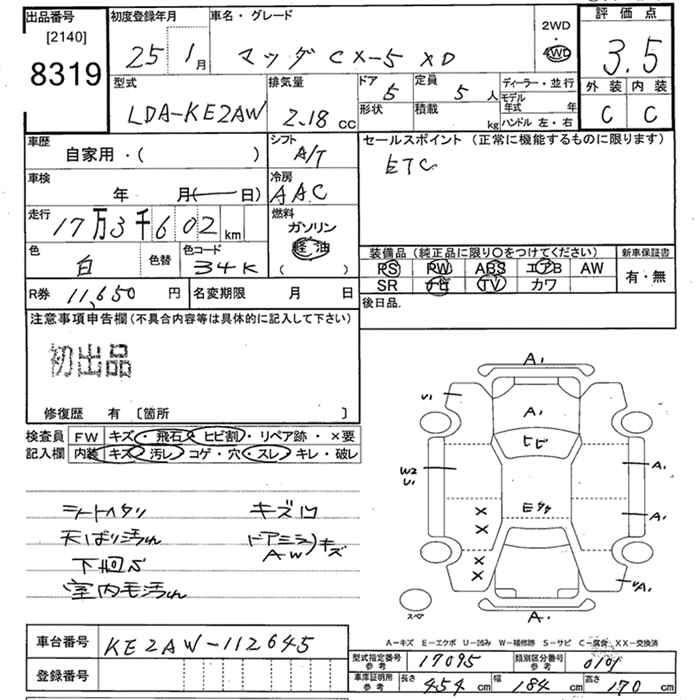 出品番号
[2140]
8319
初度登録年月
25 1月
車名・グレード
マツダ CX-5 XD
2WD
・
4WD
評価点
3.5
外装 内装
C C
型式
LDA-KE2AW
排気量
2.18 cc
ドア
5
定員
5 人
形状
積載
kg
ディーラー・並行
モデル年式 年
ハンドル 左・右
車歴
自家用・( )
シフト
A/T
セールスポイント (正常に機能するものに限ります)
ETC
車検
年 月( 日)
冷房
AAC
走行
17万3千602 km
燃料
ガソリン
軽油
( )
色
白
色替
色コード
34K
装備品 (純正品に限り○をつけてください)
PS PW ABS エアB AW
SR ナビ TV カワ
新車保証書
有・無
R券 11,650 円
名変期限 月 日
後日品
注意事項申告欄 (不具合内容等は具体的に記入して下さい)
初出品
修復歴 有 〔箇所 〕
検査員記入欄
FW キズ・飛石・ヒビ割・リペア跡・×要
内装 キズ・汚レ・コゲ・穴・スレ・キレ・破レ
シートヘタリ
天ばり汚れ
下回S
室内毛汚れ
キズ凹
ドアミラーキズ
AW
A1
U1
A1
ヒビ
W2
U1
A1
A1
X
X
X
X
A1
A1
スペア
A-キズ E-エクボ U-凹み W-補修跡 S-サビ C-腐食 XX-交換済
車台番号 KE2AW-112645
登録番号
型式指定番号 参考 17095
類別区分番号 参考 0101
車庫証明所 参考 長さ 454 cm 幅 184 cm 高さ 170 cm